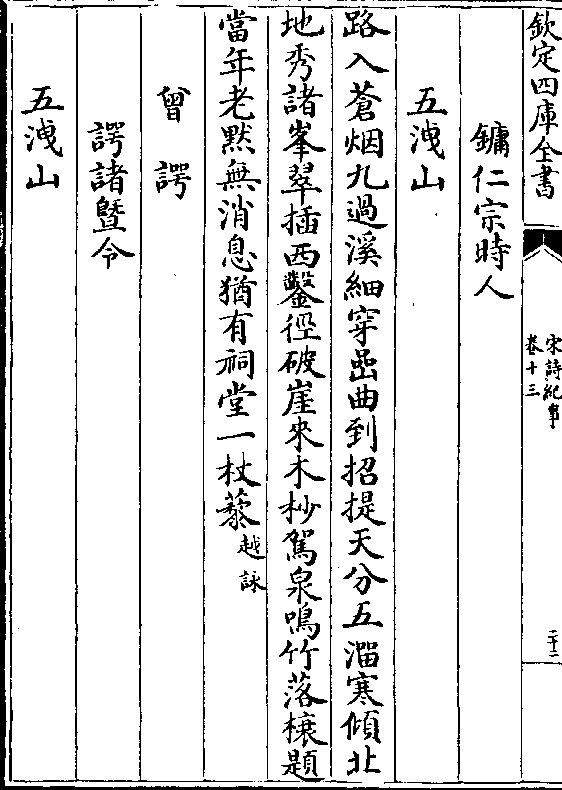 欽定四庫全書
宋詩紀事
卷十三
二十二
鏞仁宗時人
五洩山
路入蒼烟九過溪細穿嵒曲到招提天分五溜寒傾北
地秀諸峯翠插西鑿徑破崖來木杪駕泉鳴竹落榱題
當年老黙無消息猶有祠堂一杖藜越詠
曾諤
諤諸暨令
五洩山